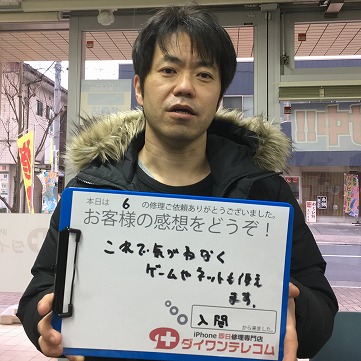 本日は 6 の修理ご依頼ありがとうございました。
お客様の感想をどうぞ!
これで気がねなく
ゲームやネットも使え
ます。
入間 から来ました。
iPhone 即日修理専門店
ダイワンテレコム